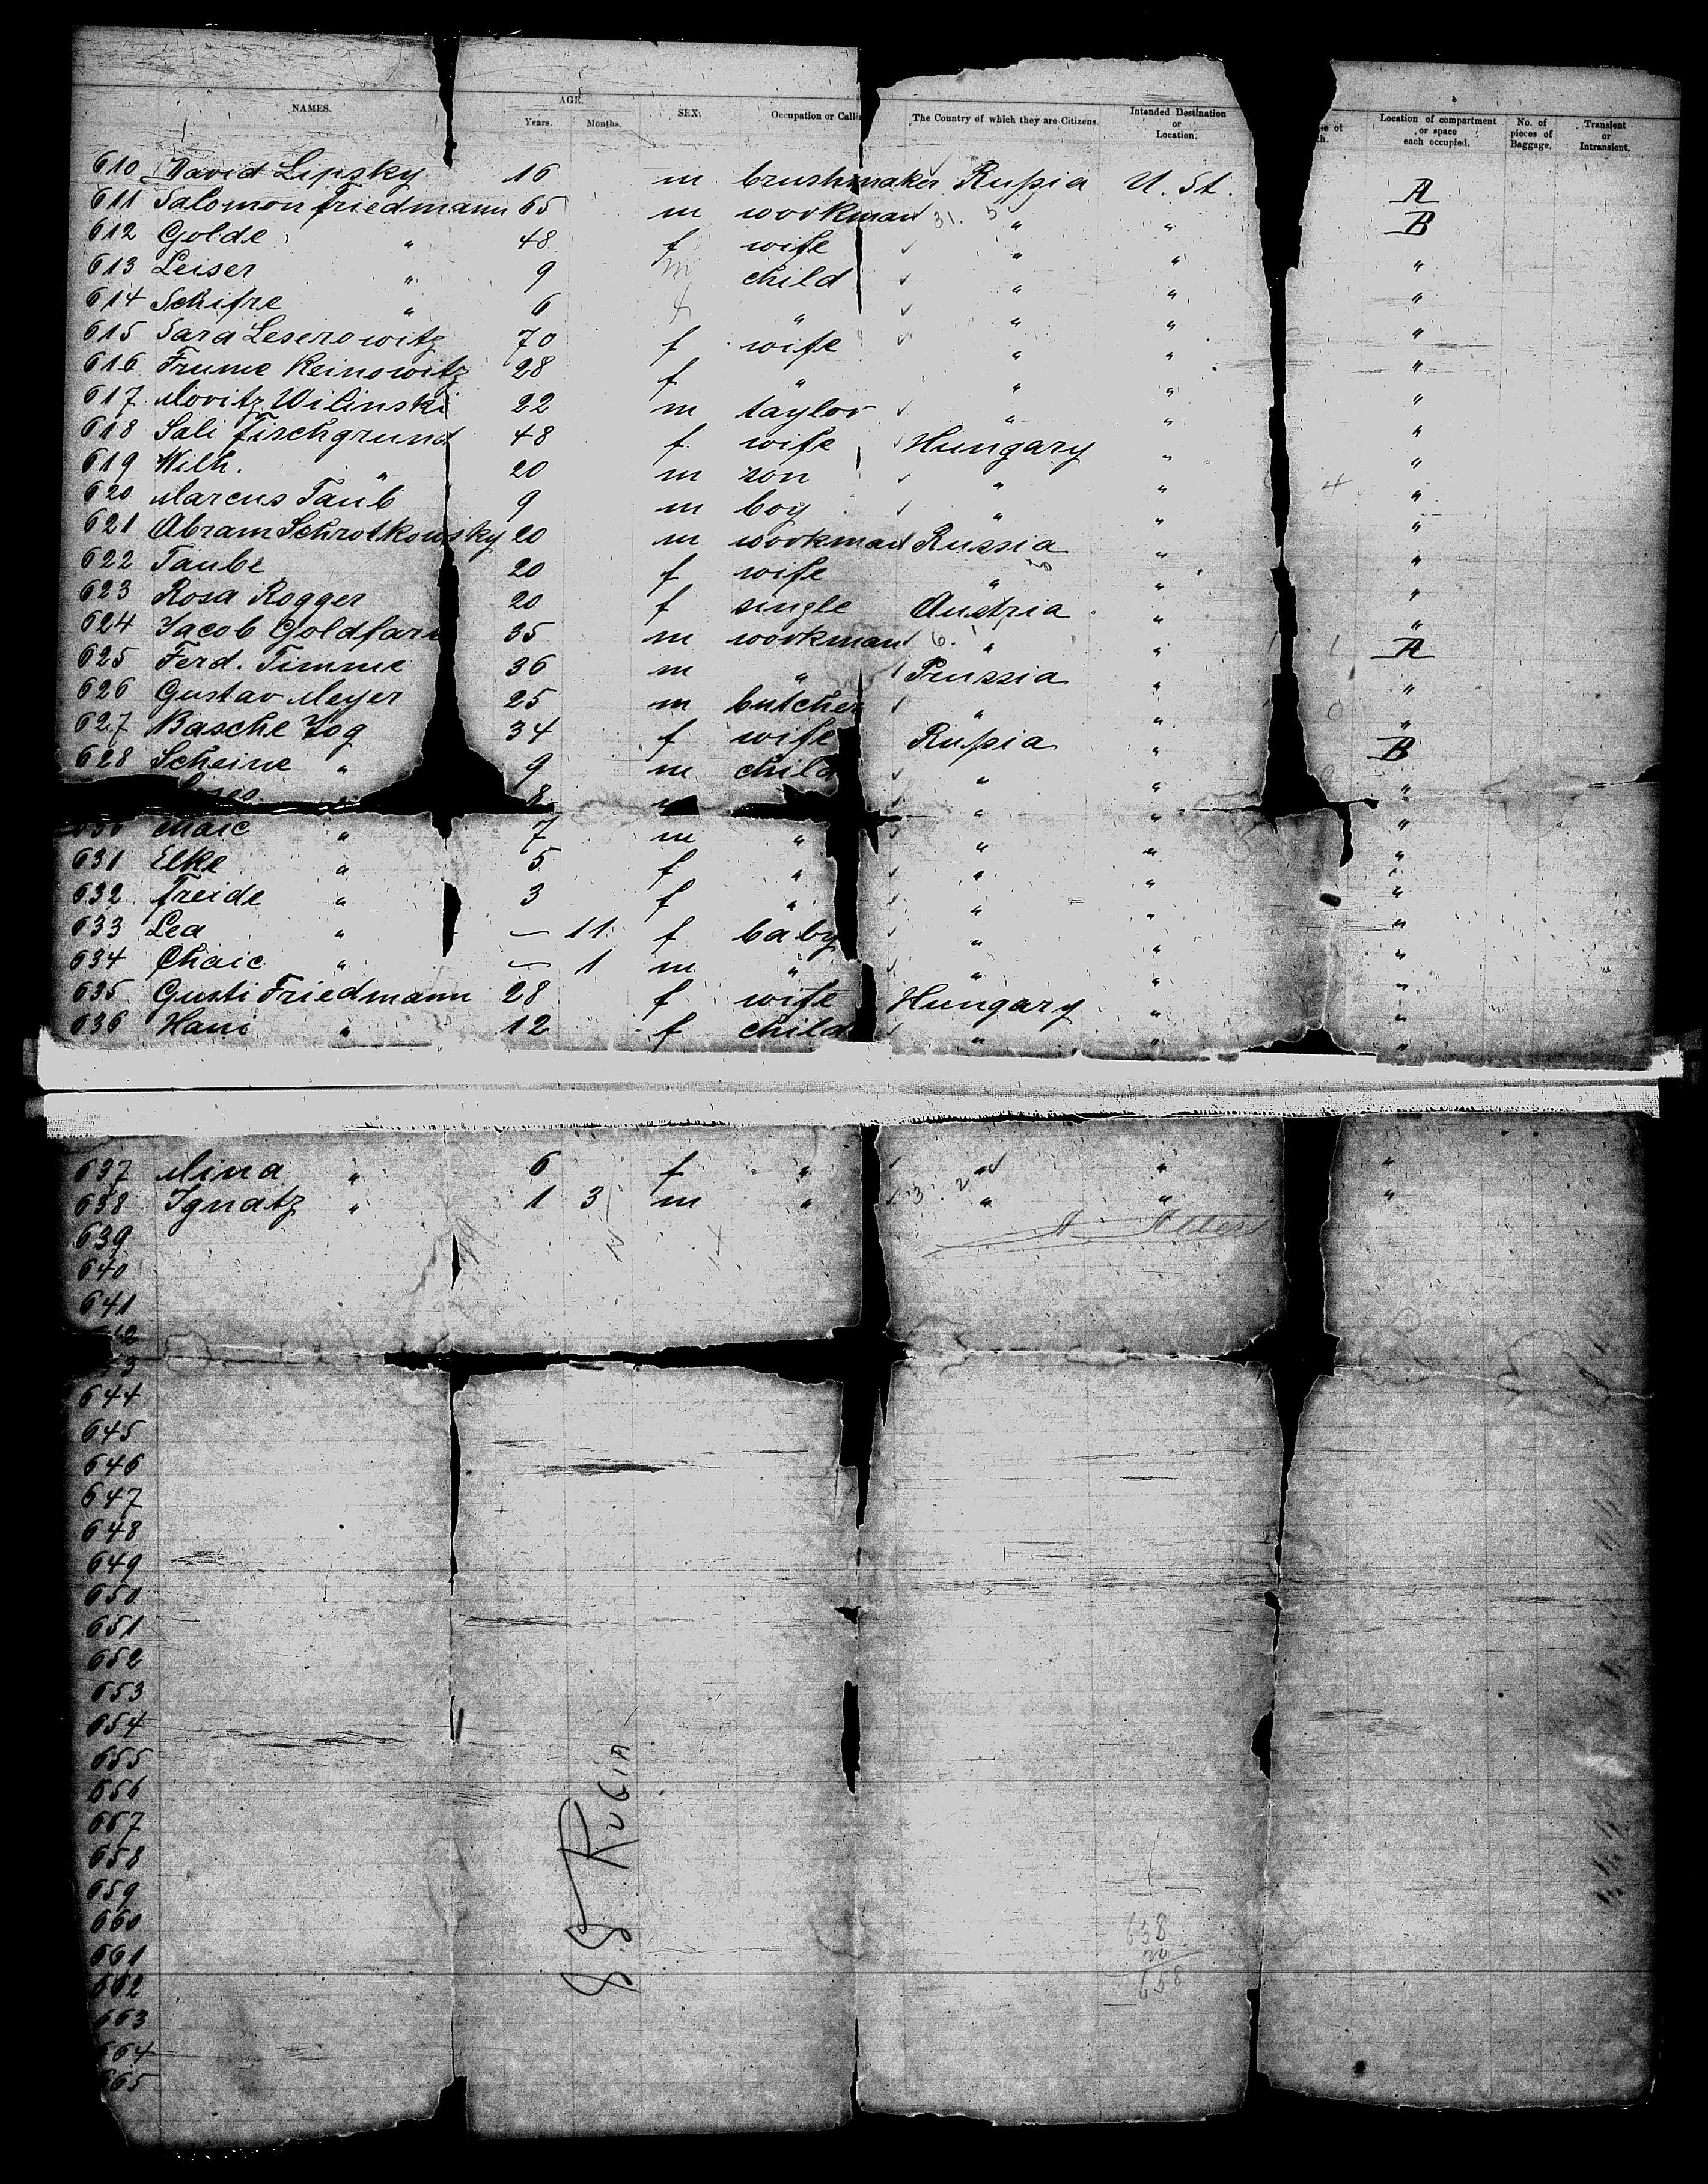 NAMES. AGE. Years. Months. SEX. Occupation or Calli The Country of which they are Citizens. Intended Destination or Location. Location of compartment or space each occupied. No. of pieces of Baggage. Transient or Intransient.
610 David Lipsky 16 m brushmaker Russia U. St. A
611 Salomon Friedmann 65 m workman " " B
612 Golde " 48 f wife " " "
613 Leiser " 9 m child " " "
614 Schifre " 6 f " " " "
615 Sara Leserowitz 70 f wife " " "
616 Frume Reinowitz 28 f " " " "
617 Moritz Wilinski 22 m taylor " " "
618 Sali Fischgrund 48 f. wife Hungary " "
619 Wilh. " 20 m son " " "
620 Marcus Taub 9 m boy " " "
621 Abram Schrotkowsky 20 m workman Russia " "
622 Taube 20 f wife " " "
623 Rosa Rogger 20 f single Austria " "
624 Jacob Goldfarb 35 m workman 6. " " A
625 Ferd. Timme 36 m " Prussia " "
626 Gustav Meyer 25 m butcher " " "
627 Basche Jog 34 f wife Russia " B
628 Scheine " 9 m child " " "
" 8 " " " "
630 Chaie " 7 m " " " "
631 Elke " 5 f " " " "
632 Freide " 3 f " " " "
633 Lea " — 11 f baby " " "
634 Chaie " — 1 m " " " "
635 Gusti Friedmann 28 f wife Hungary " "
636 Hani " 12 f child " " "
637 Mina " 6 f " " " "
638 Ignatz " 1 3 m " " " "
639
640
641
642
643
644
645
646
647
648
649
650
651
652
653
654
655
656
657
658
659
660
661
662
663
664
665
SS Rugia
638
20
658